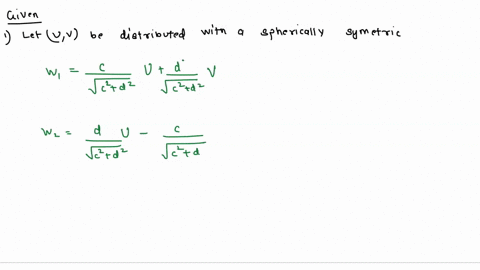 Given
1) Let (U,V) be distributed with a spherically symetric
W₁ = c/√(c²+d²) U + d/√(c²+d²) V
W₂ = d/√(c²+d²) U - c/√(c²+d)